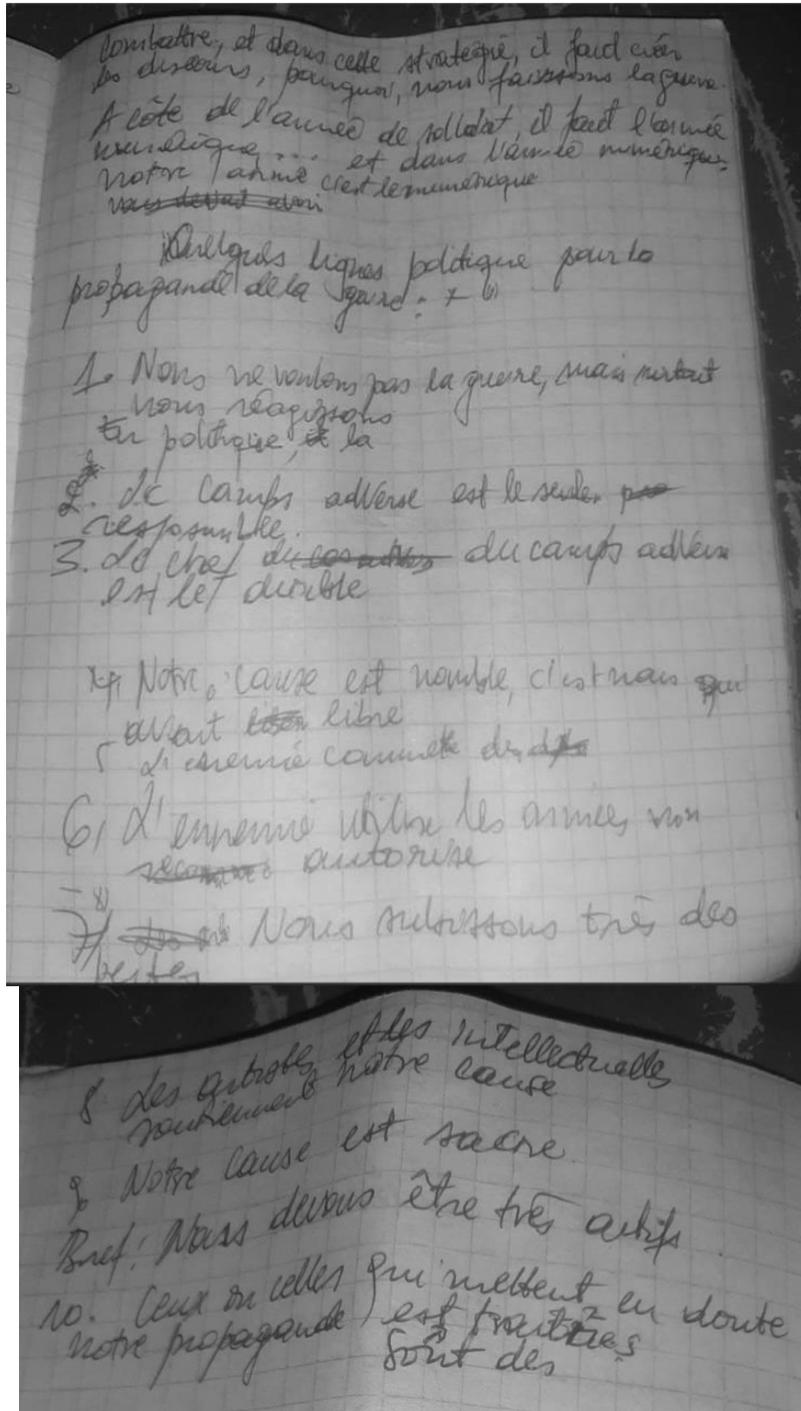 Combattre, et dans cette strategie, il faud créer
les discours, pourquoi, nous faisssons la guerre.
A côte de l'armée de solldat, il faut l'armée
numérique... et dans l'armée numérique,
notre arme c'est le numérique
nous devait avoir
Quelques lignes politique pour la
propagande de la guerre: x
1. Nous ne voulons pas la guerre, mais surtout
nous réagissons
En politique, la
2. Le camps adverse est le seule
responsable.
3. Le chef du camps adverse
est let diable
4. Notre cause est nomble, c'est nous qui
libre
5 L'ennemie commet des
6, L'ennemie utilise les armées non
autorise
7/ Nous subissons très des
pertes
8 Les artistes et les intellectuelles
soutiennent notre cause
9 Notre cause est sacre.
Bref: Nous devons être très actifs.
10. Ceux ou celles qui mettent en doute
notre propagande, est traitres
sont des